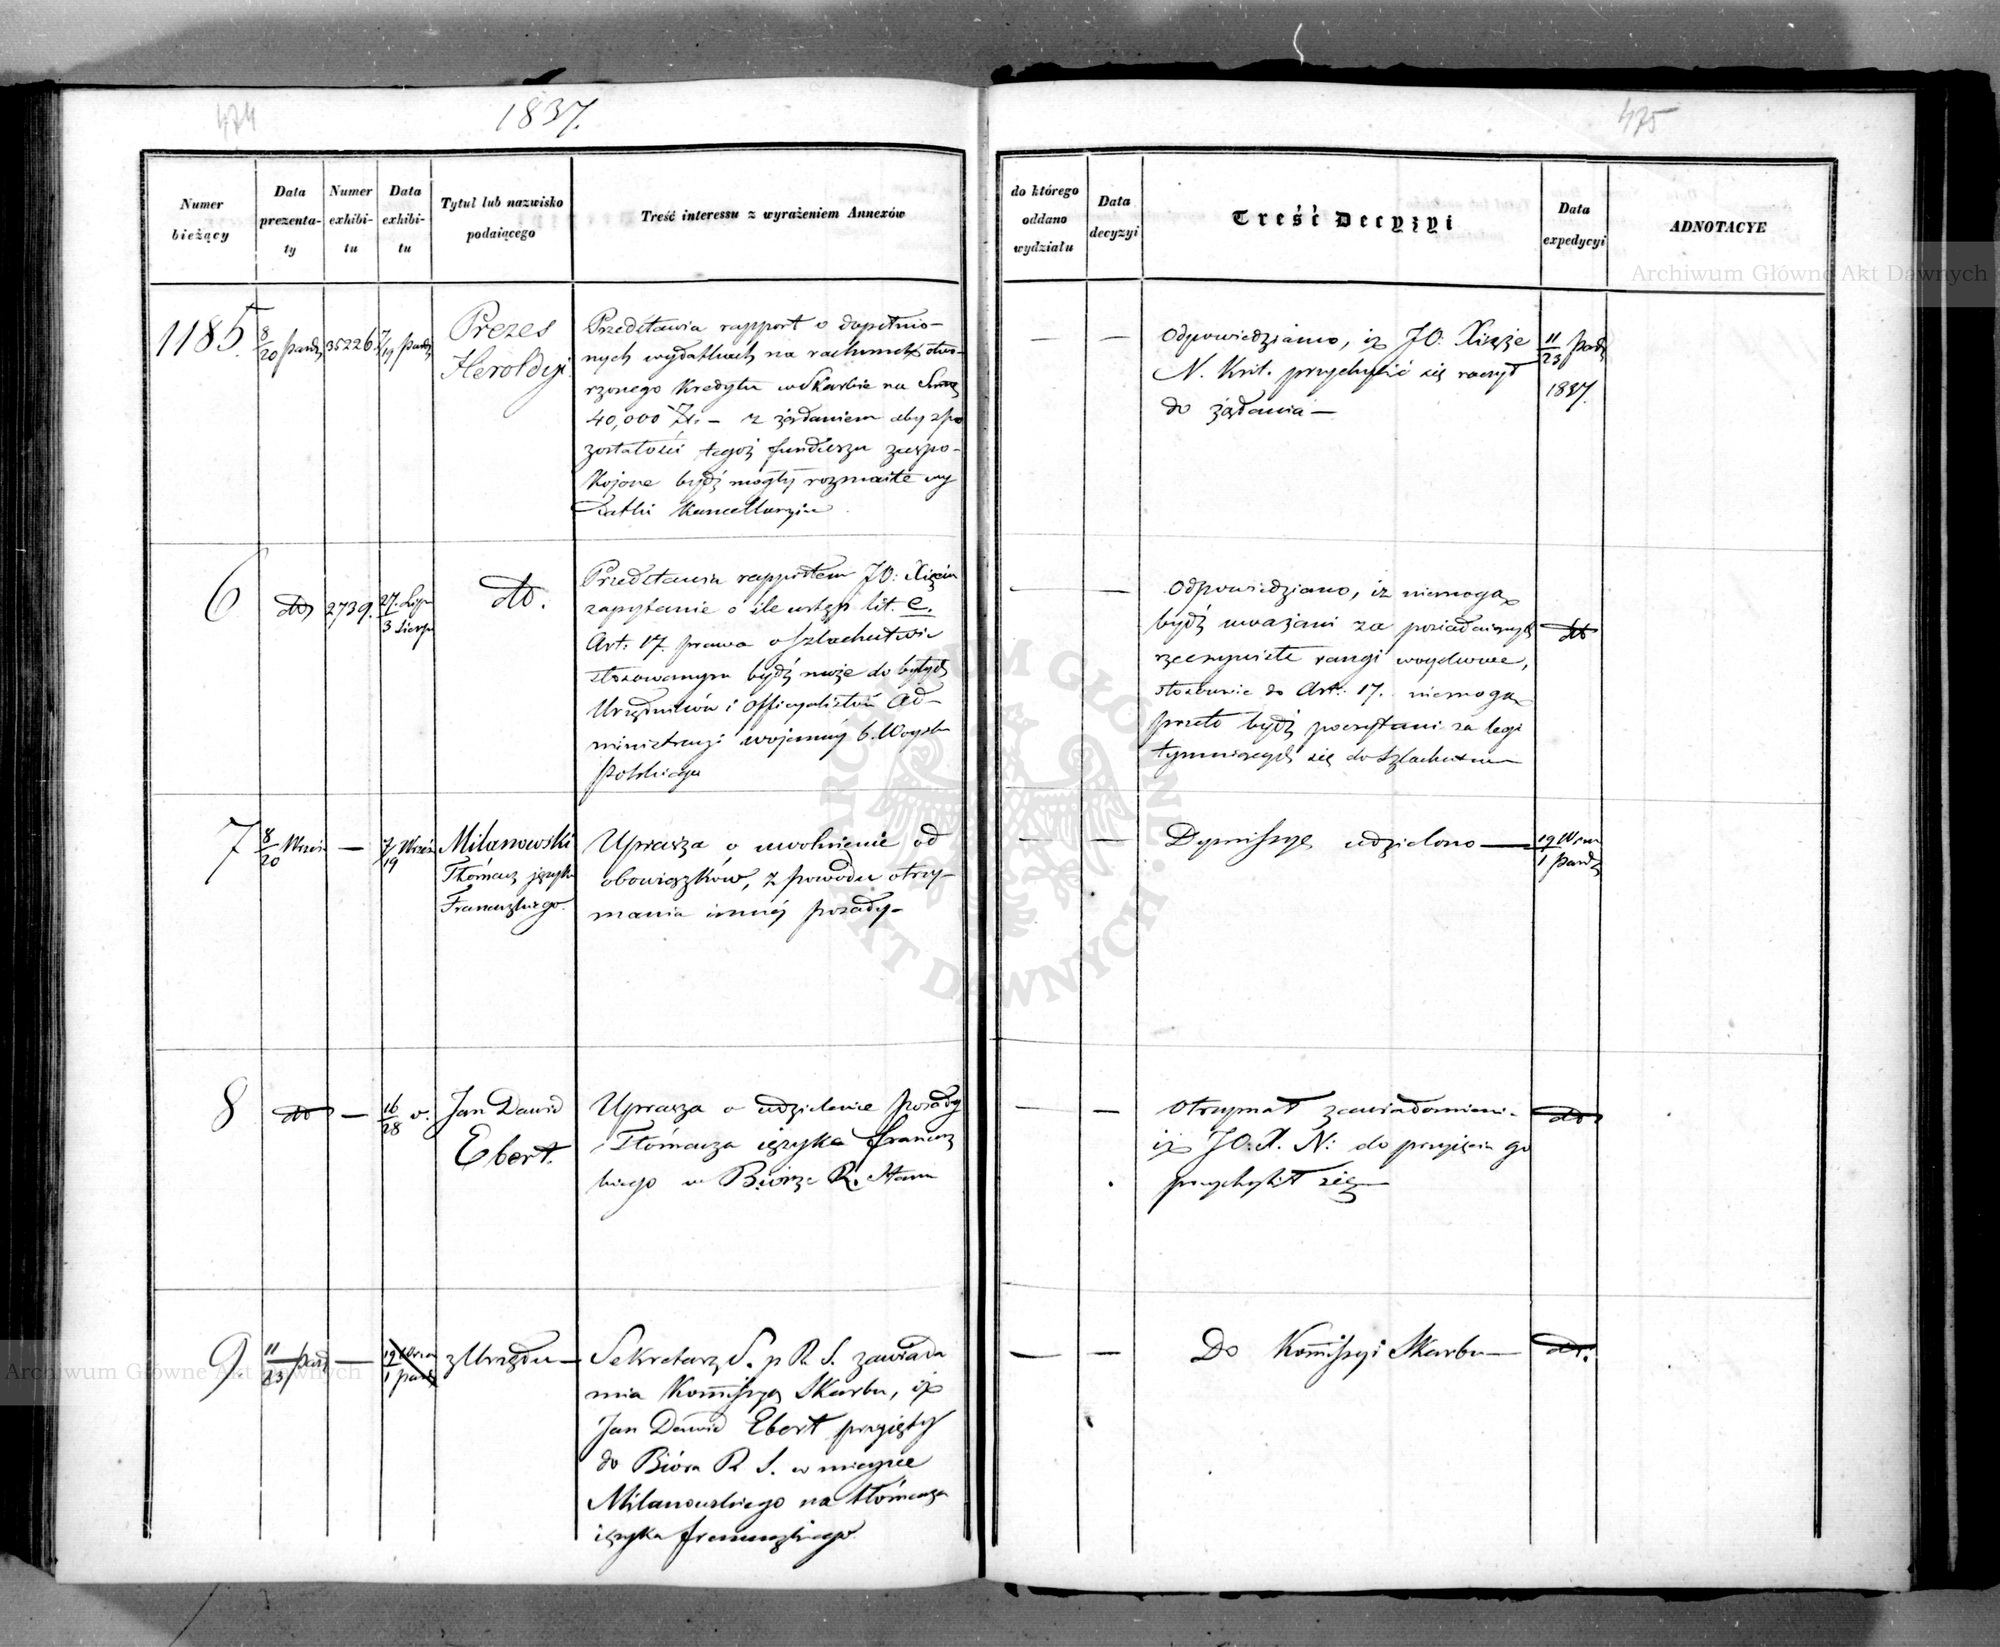 474
1837.
Numer bieżący
Data prezenta-ty
Numer exhibi-tu
Data exhibi-tu
Tytuł lub nazwisko podaiącego
Treść interessu z wyrażeniem Annexów
1185.
8/20 Paźdz
35226
7/19 Paźdz
Prezes
Heroldyi
Przedstawia rapport o dopełnio-
nych wydatkach na rachunek otwo-
rzonego Kredytu w Skarbie na Summę
40,000 Zł. – z żądaniem aby z po
zostałości tegoż funduszu zaspo-
kojone bydź mogły rozmaite wy
datki Kancellaryine
6
dto
2739.
27. Lip
3 Sierp
dto.
Przedstawia rapportem JO: Xięciu
zapytanie o ile ustęp lit. C.
Art: 17. prawa o Szlachectwie
stosowanym bydź może do byłych
Urzędników i Officyalistów Ad-
ministracyi wojennéj b. Woyska
Polskiego
7
8/20 Wrześ
—
7/19 Wrześ
Milanowski
Tłómacz języka
Francuzkiego.
Uprasza o uwolnienie od
obowiązków, z powodu otrzy-
mania innéj posady-
8
dto
—
16/28 v.
Jan Dawid
Ebert.
Uprasza o udzielenie posady
Tłómacza ięzyka francuz
kiego w Biórze R. Stanu
9.
11/23 Paźd
—
19 Wrze
1 Paźdz
z Urzędu –
Sekretarz S. p R. S. zawiada
mia Kommissyę Skarbu, iż
Jan Dawid Ebert przyięty
do Bióra R. S. w mieysce
Milanowskiego na tłómacza
ięzyka francuzkiego.
475
do którego oddano wydziału
Data decyzyi
Treść Decyzyi
Data expedycyi
ADNOTACYE
— —
Odpowiedziano, iż JO: Xiąże
N. Król. przychylić się raczył
do żądania —
11/23 Paźdz
1837.
— —
Odpowiedziano, iż niemogą
bydź uważani za posiadaiących
rzeczywiste rangi woyskowe,
stosownie do Art. 17. niemogą
przeto bydź poczytani za legi
tymuiących się do Szlachectwa
dto
— —
Dymissyę udzielono —
19 Wrze
1 Paźdz
— —
Otrzymał zawiadomieni.
iż JO: X. N: do przyięcia go
przychylił się —
dto
— —
Do Kommissyi Skarbu —
dt.
Archiwum Główne Akt Dawnych
Archiwum Główne Akt Dawnych
ARCHIWUM GŁÓWNE AKT DAWNYCH